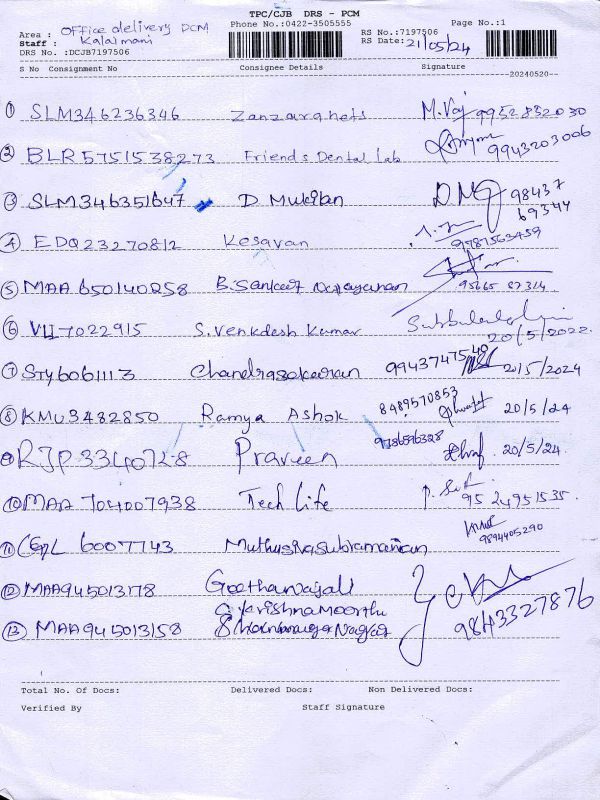 TPC/CJB DRS - PCM
Phone No.:0422-3505555
Page No.:1
Area : Office delivery DCM
Staff : Kalaimani
DRS No. :DCJB7197506
RS No.:7197506
RS Date: 21/05/24
S No Consignment No Consignee Details Signature
20240520
1 SLM346236346 9952852030
2 BLR57515138273 Friends Dental Lab 9943203006
3 SLM346351647 D Mukilan 98437 69344
4 EDQ23270812 Kesavan
5 MAA650140258 B.Sanjeev 95665 87314
6 7022915 S.Venkdesh Kumar 20/5/2022
7 STY6061113 Chandrasekaran 20/5/2024
8 KMU3482850 Ramya Ashok 8489570853 20/5/24
9 RJP3340728 Praveen 9786596328 20/5/24
10 MAA704007938 Tech Life 95 24951535
11 6007743 Muthusivasubramanian 9894405290
12 MAA945013178
13 MAA945013158 9843327876
Total No. Of Docs: Delivered Docs: Non Delivered Docs:
Verified By Staff Signature